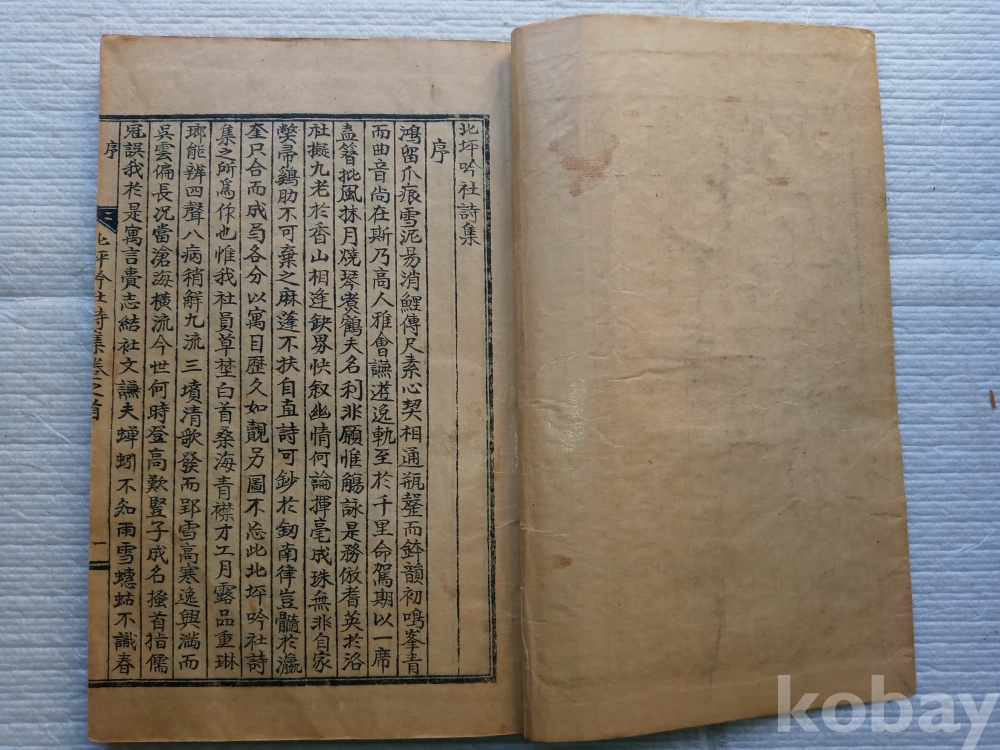 北坪吟社詩集
序
鴻留爪痕雪泥易消鯉傳尺素心契相通瓶罄而鉢韻初鳴峯青
而曲音尚在斯乃高人雅會讌遊逸軌至於千里命駕期以一席
盍簪批風抹月燒琴煑鶴夫名利非願惟觴詠是務倣耆英於洛
社擬九老於香山相逢缺界快叙幽情何論揮毫成珠無非自家
獘帚鷄肋不可棄之麻蓬不扶自直詩可鈔於釰南律豈髓於瀛
奎只合而成局各分以寓目歷久如覿另圖不忘此北坪吟社詩
集之所爲作也惟我社員草埜白首桑海青襟才工月露品重琳
瑯能辨四聲八病稍解九流三墳清歌發而郢雪高寒逸興湍而
吳雲偏長况當滄海橫流今世何時登高歎豎子成名搔首指儒
冠誤我於是寓言賷志結社文讌夫蟬蚓不知雨雪蟪蛄不識春
序
北坪吟社詩集卷之首
一
kobay